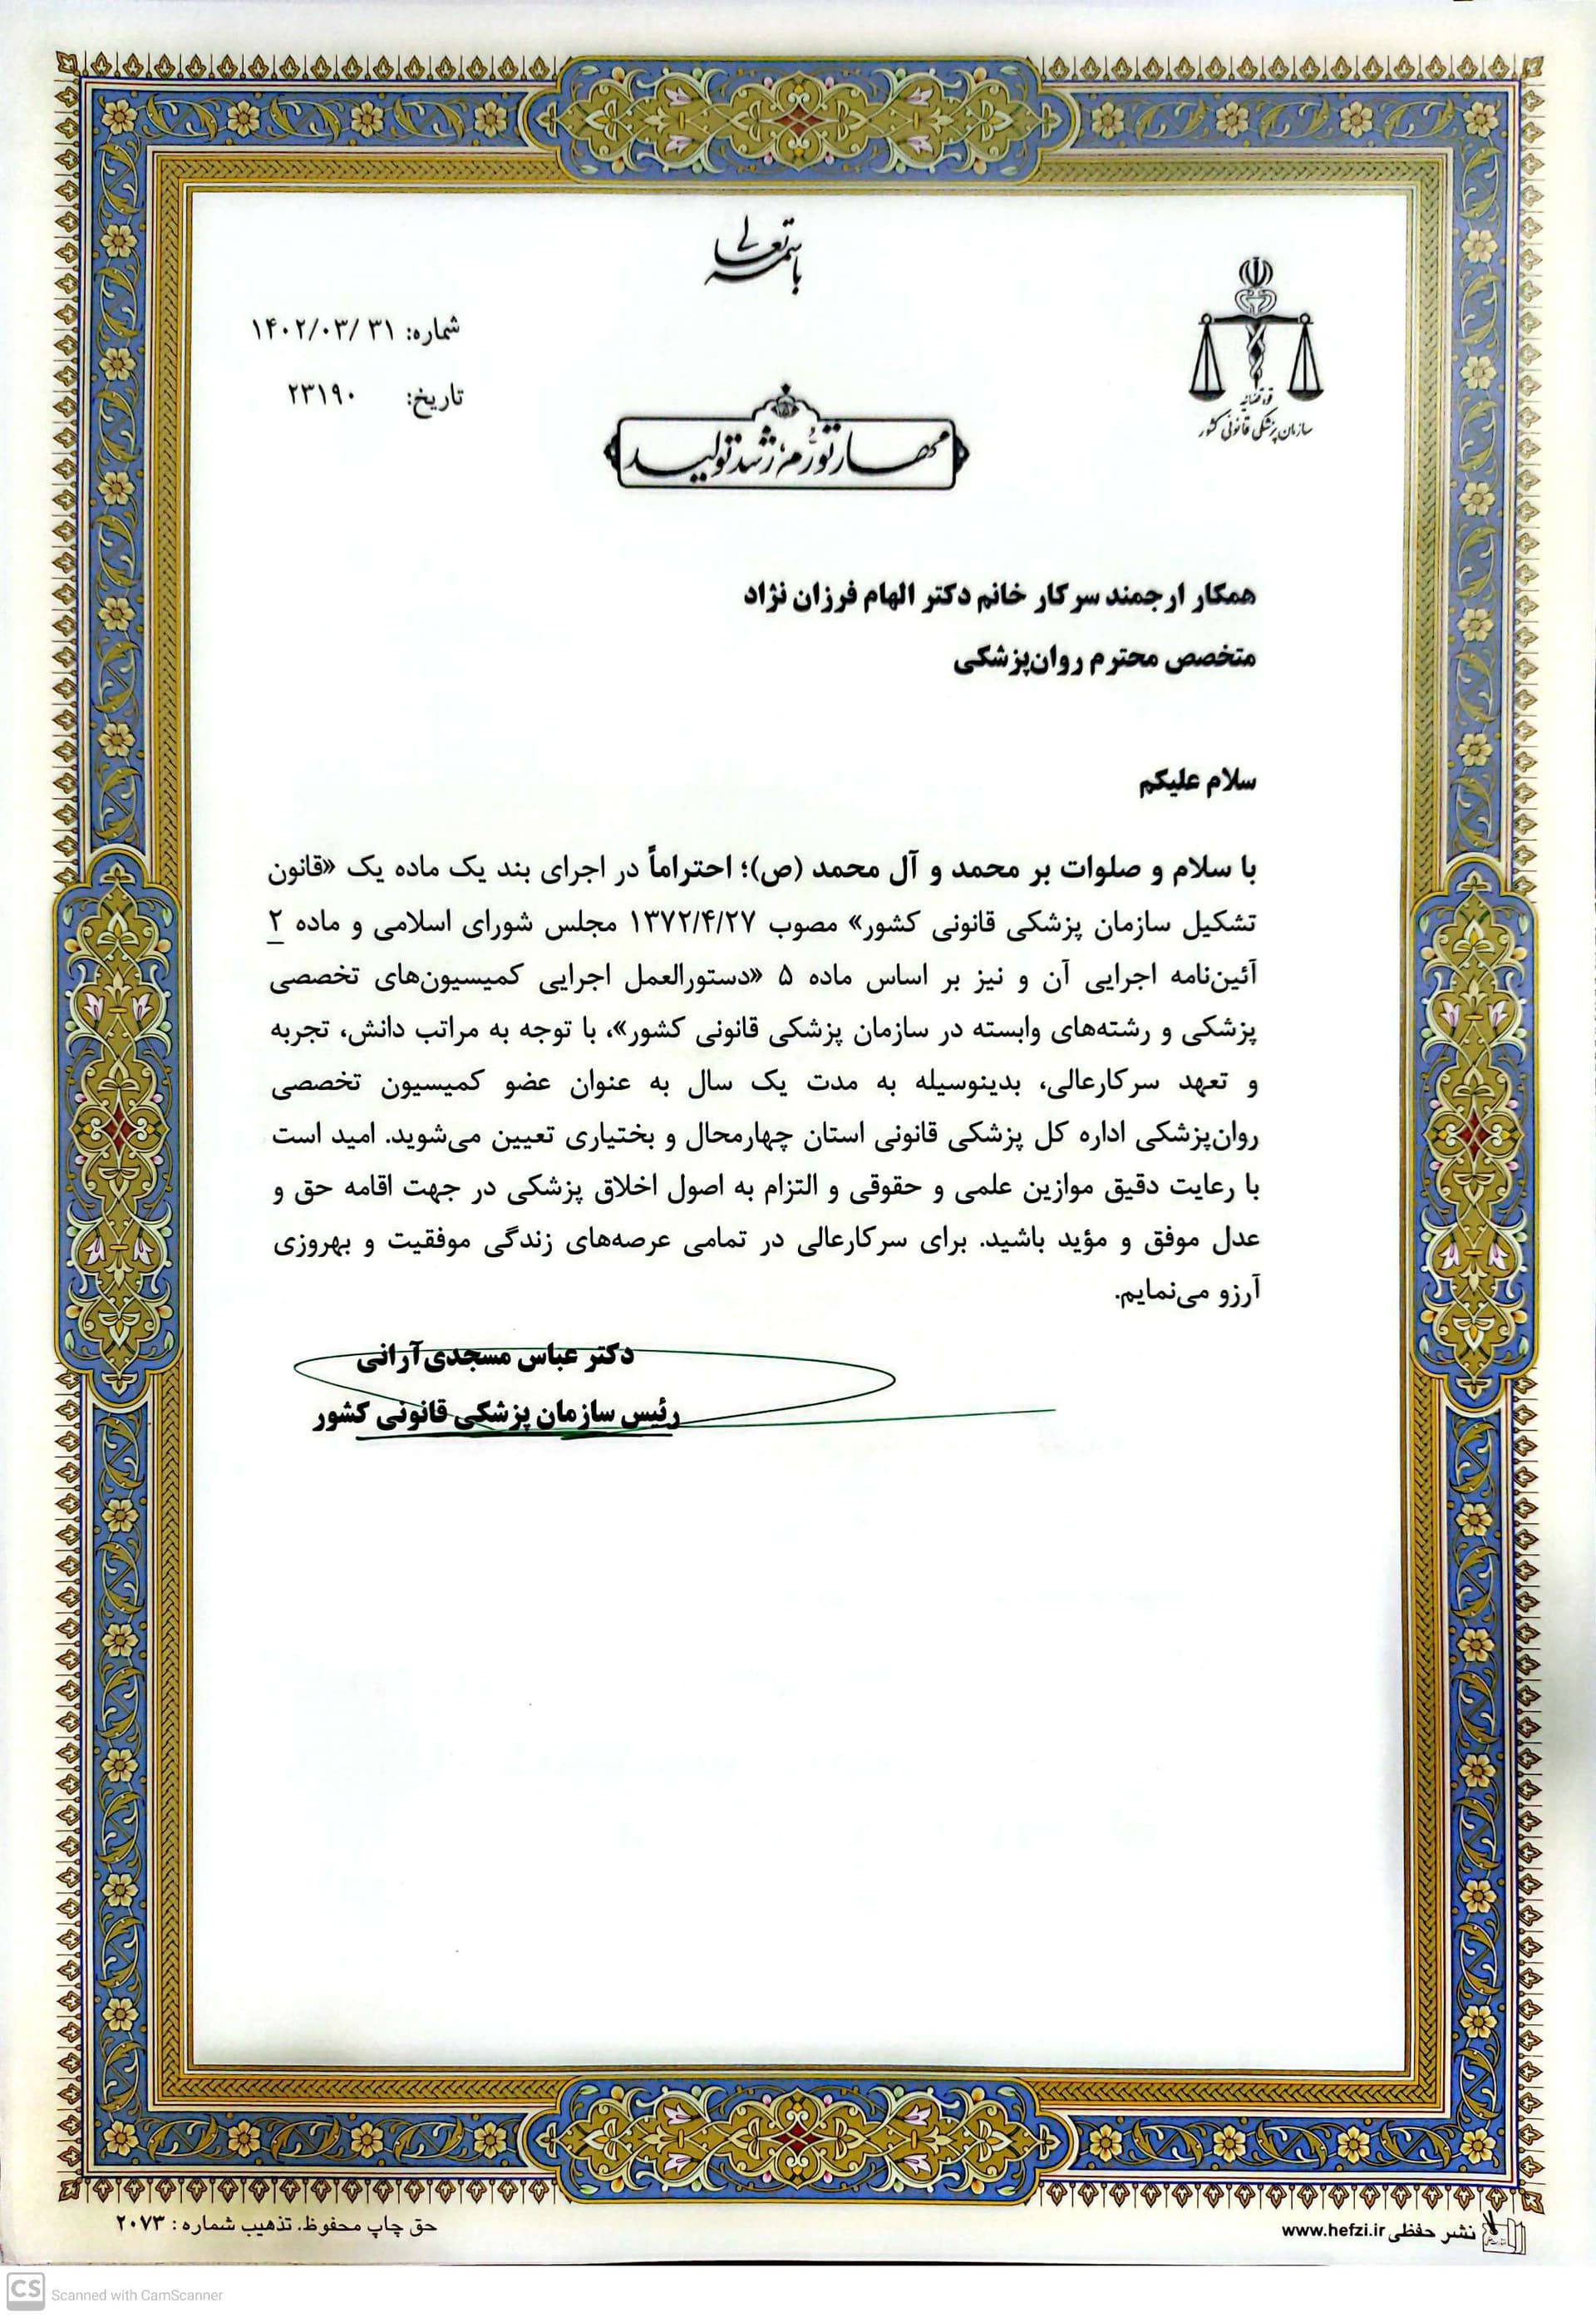 باسمه تعالی
قوه قضائیه
سازمان پزشکی قانونی کشور
شماره: ۱۴۰۲/۰۳/۳۱
تاریخ: ۲۳۱۹۰
مهار تورم، رُشد تولید
همکار ارجمند سرکار خانم دکتر الهام فرزان نژاد
متخصص محترم روان‌پزشکی
سلام علیکم
با سلام و صلوات بر محمد و آل محمد (ص)؛ احتراماً در اجرای بند یک ماده یک «قانون
تشکیل سازمان پزشکی قانونی کشور» مصوب ۱۳۷۲/۴/۲۷ مجلس شورای اسلامی و ماده ۲
آئین‌نامه اجرایی آن و نیز بر اساس ماده ۵ «دستورالعمل اجرایی کمیسیون‌های تخصصی
پزشکی و رشته‌های وابسته در سازمان پزشکی قانونی کشور»، با توجه به مراتب دانش، تجربه
و تعهد سرکارعالی، بدینوسیله به مدت یک سال به عنوان عضو کمیسیون تخصصی
روان‌پزشکی اداره کل پزشکی قانونی استان چهارمحال و بختیاری تعیین می‌شوید. امید است
با رعایت دقیق موازین علمی و حقوقی و التزام به اصول اخلاق پزشکی در جهت اقامه حق و
عدل موفق و مؤید باشید. برای سرکارعالی در تمامی عرصه‌های زندگی موفقیت و بهروزی
آرزو می‌نمایم.
دکتر عباس مسجدی‌آرانی
رئیس سازمان پزشکی قانونی کشور
نشر حفظی www.hefzi.ir
حق چاپ محفوظ. تذهیب شماره : ۲۰۷۳
CS Scanned with CamScanner